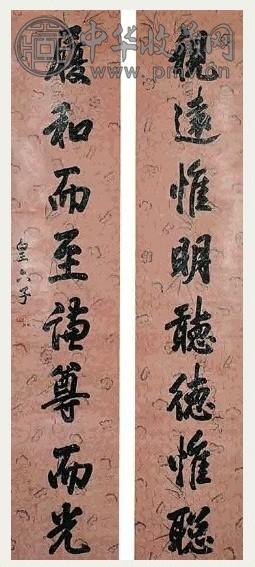 中华收藏网
視遠惟明聽徳惟聰
履和而至謙尊而光
皇六子